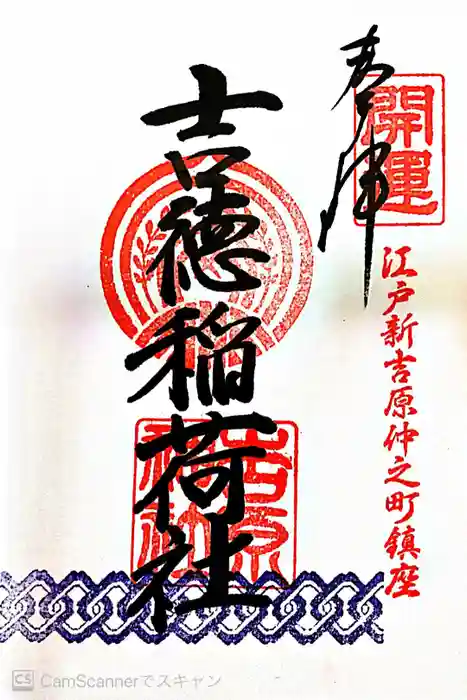 奉拝
開運
江戸新吉原仲之町鎮座
吉徳稲荷社
CS CamScannerでスキャン